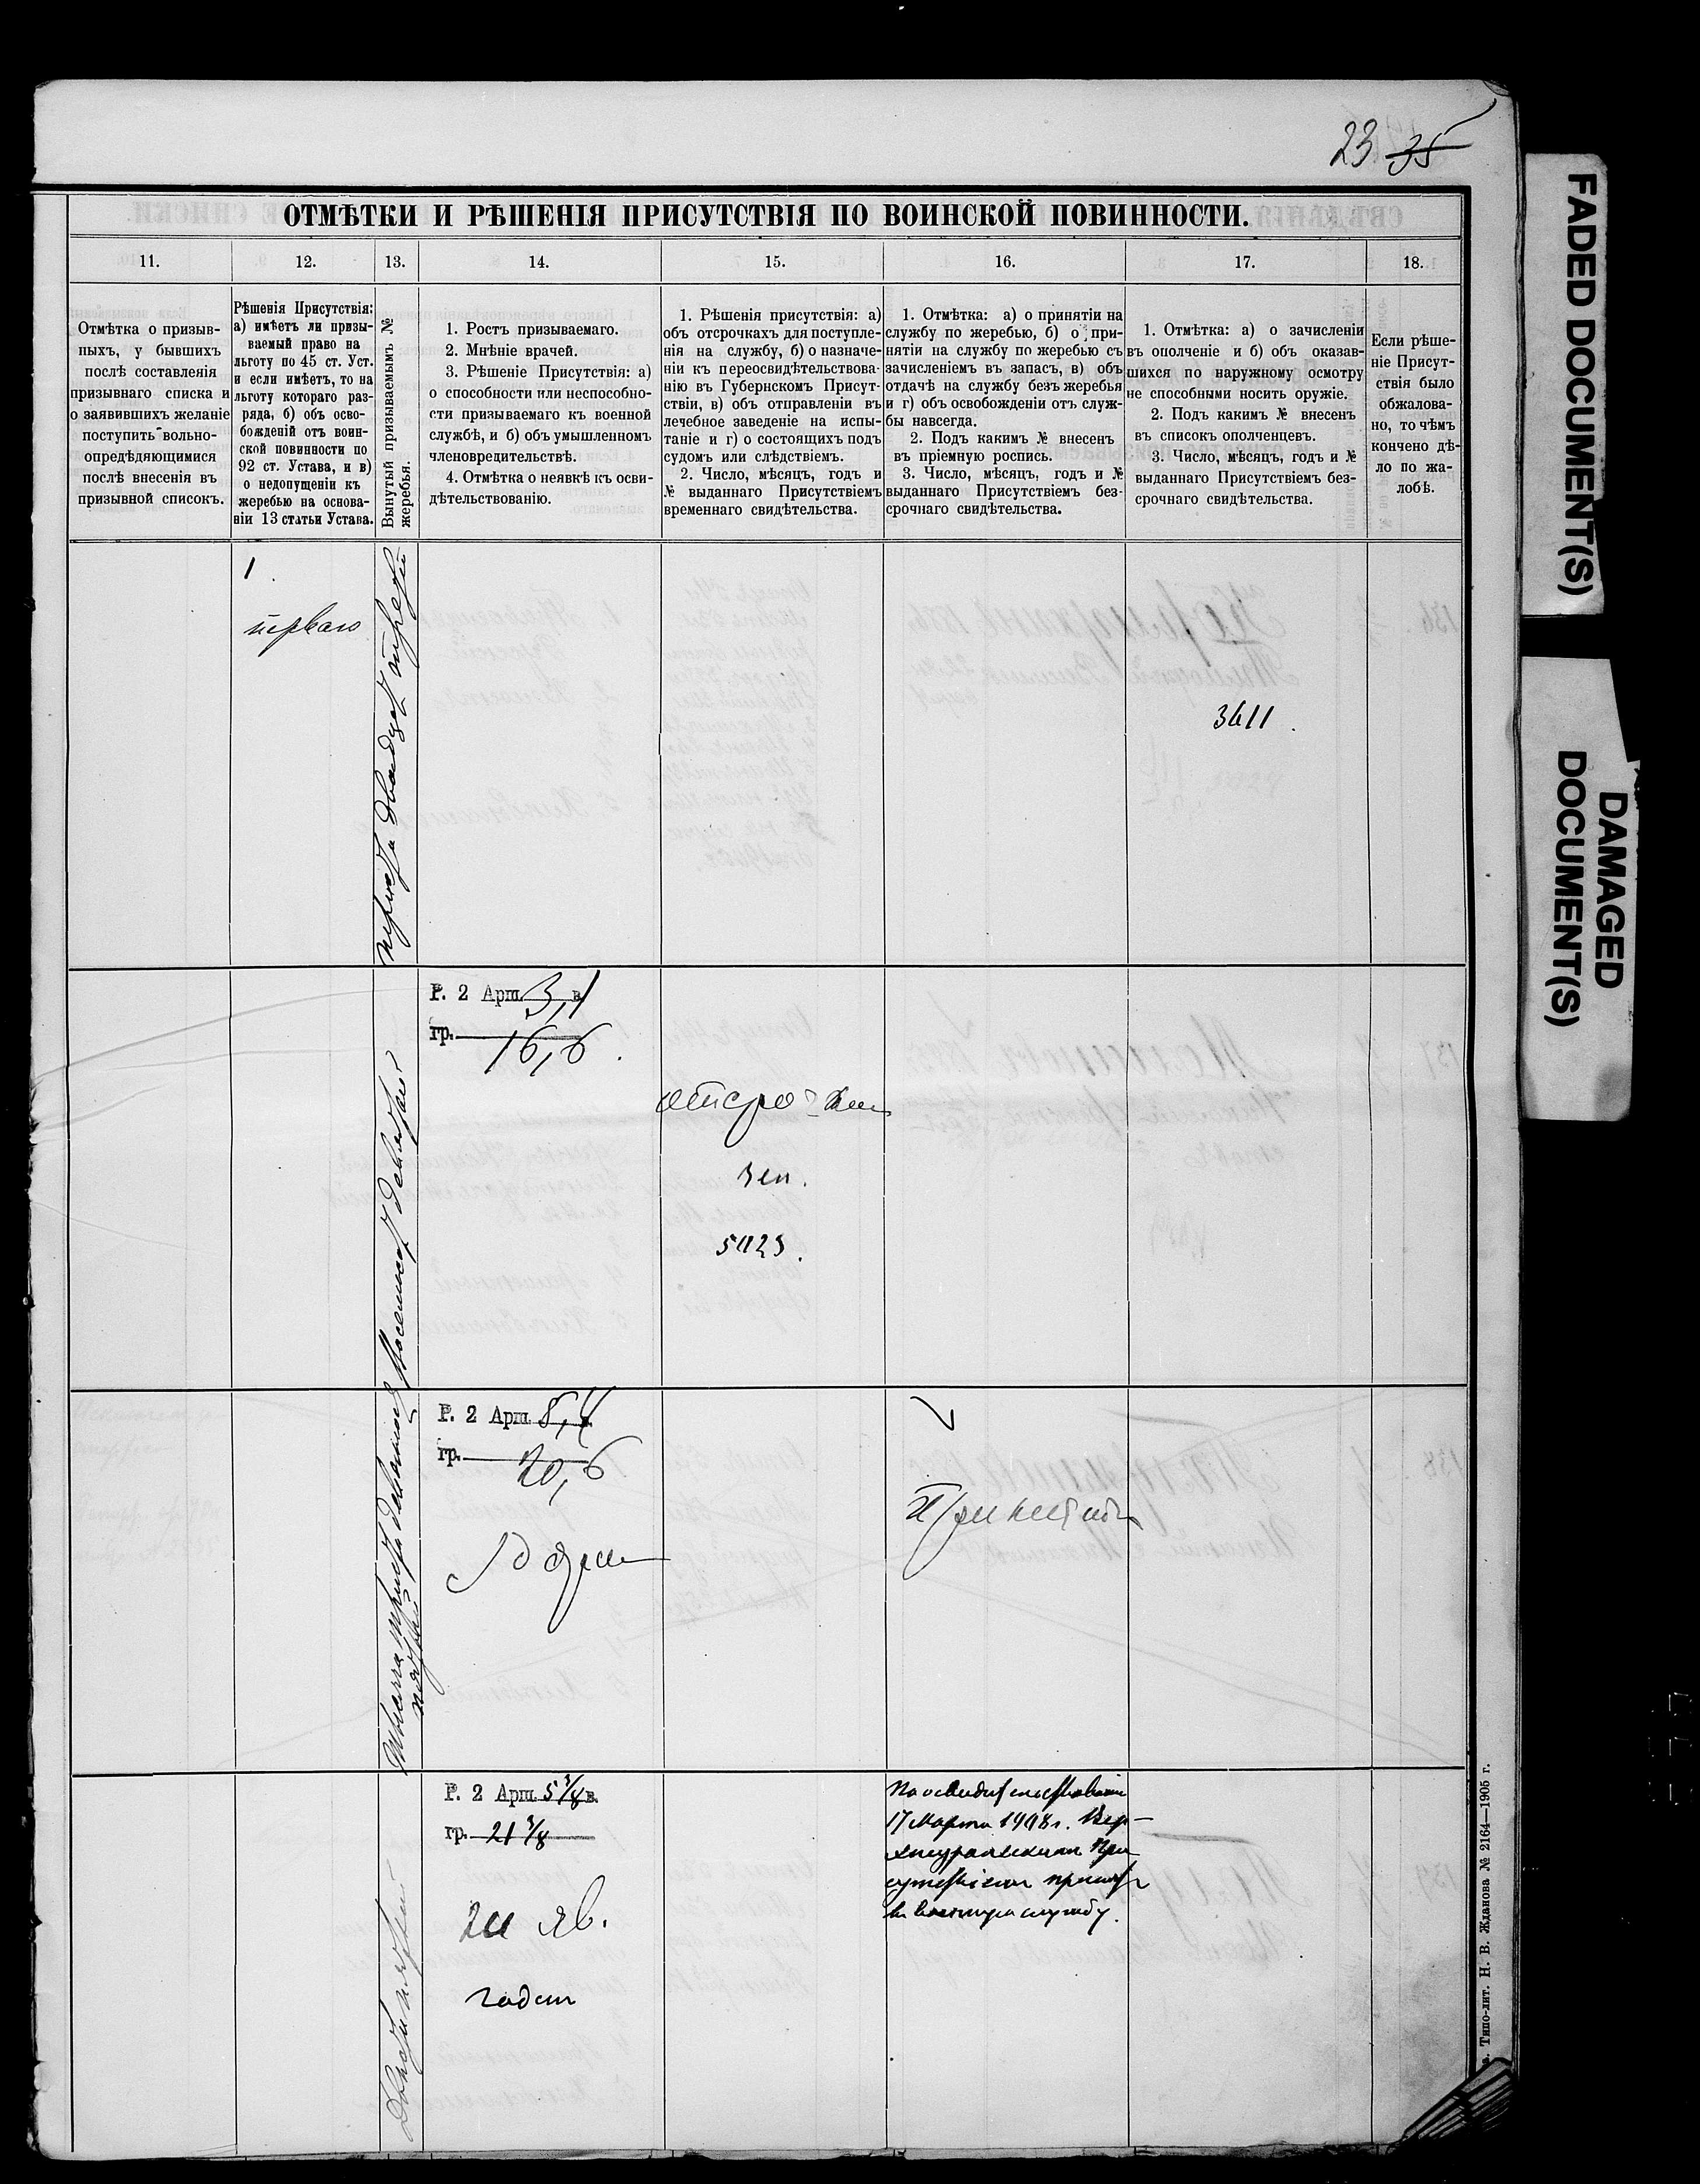 23 35
ОТМѢТКИ И РѢШЕНІЯ ПРИСУТСТВІЯ ПО ВОИНСКОЙ ПОВИННОСТИ.
11.
12.
13.
14.
15.
16.
17.
18.
Отмѣтка о призыв-
ныхъ, у бывшихъ
послѣ составленія
призывнаго списка и
о заявившихъ желаніе
поступить вольно-
опредѣдяющимися
послѣ внесенія въ
призывной списокъ.
Рѣшенія Присутствія:
а) имѣетъ ли призы-
ваемый право на
льготу по 45 ст. Уст.
и если имѣетъ, то на
льготу котораго раз-
ряда, б) объ осво-
божденій отъ воин-
ской повинности по
92 ст. Устава, и в)
о недопущеніи къ
жеребью на основа-
ніи 13 статьи Устава.
Вынутый призываемымъ №
жеребья.
1. Ростъ призываемаго.
2. Мнѣніе врачей.
3. Рѣшеніе Присутствія: а)
о способности или неспособно-
сти призываемаго къ военной
службѣ, и б) объ умышленномъ
членовредительствѣ.
4. Отмѣтка о неявкѣ къ осви-
дѣтельствованію.
1. Рѣшенія присутствія: а)
объ отсрочкахъ для поступле-
нія на службу, б) о назначе-
ніи къ переосвидѣтельствова-
нію въ Губернскомъ Присут-
ствіи, в) объ отправленіи въ
лечебное заведеніе на испы-
таніе и г) о состоящихъ подъ
судомъ или слѣдствіемъ.
2. Число, мѣсяцъ, годъ и
№ выданнаго Присутствіемъ
временнаго свидѣтельства.
1. Отмѣтка: а) о принятіи на
службу по жеребью, б) о при-
нятіи на службу по жеребью съ
зачисленіемъ въ запасъ, в) объ
отдачѣ на службу безъ жеребья
и г) объ освобожденіи отъ служ-
бы навсегда.
2. Подъ какимъ № внесенъ
въ пріемную роспись.
3. Число, мѣсяцъ, годъ и №
выданнаго Присутствіемъ без-
срочнаго свидѣтельства.
1. Отмѣтка: а) о зачисленіи
въ ополченіе и б) объ оказав-
шихся по наружному осмотру
не способными носить оружіе.
2. Подъ какимъ № внесенъ
въ списокъ ополченцевъ.
3. Число, мѣсяцъ, годъ и №
выданнаго Присутствіемъ без-
срочнаго свидѣтельства.
Если рѣше-
ніе Присут-
ствія было
обжалова-
но, то чѣмъ
кончено дѣ-
ло по жа-
лобѣ.
1
перваго
двадцать третій
3611.
Р. 2 Арш. 3,1 в.
гр. 16,6.
5023.
Р. 2 Арш. 8,4
гр. 20,6
Принятъ
Р. 2 Арш. 5 3/8 в.
гр. 21 3/8
яв.
годен
17 Марта 1908 г. Вер-
хнеуральскимъ При
сутствіемъ принятъ
въ военную службу.
Двѣсти пятый
Типо-лит. Н. В. Жданова № 2164—1905 г.
FADED DOCUMENT(S)
DAMAGED
DOCUMENT(S)